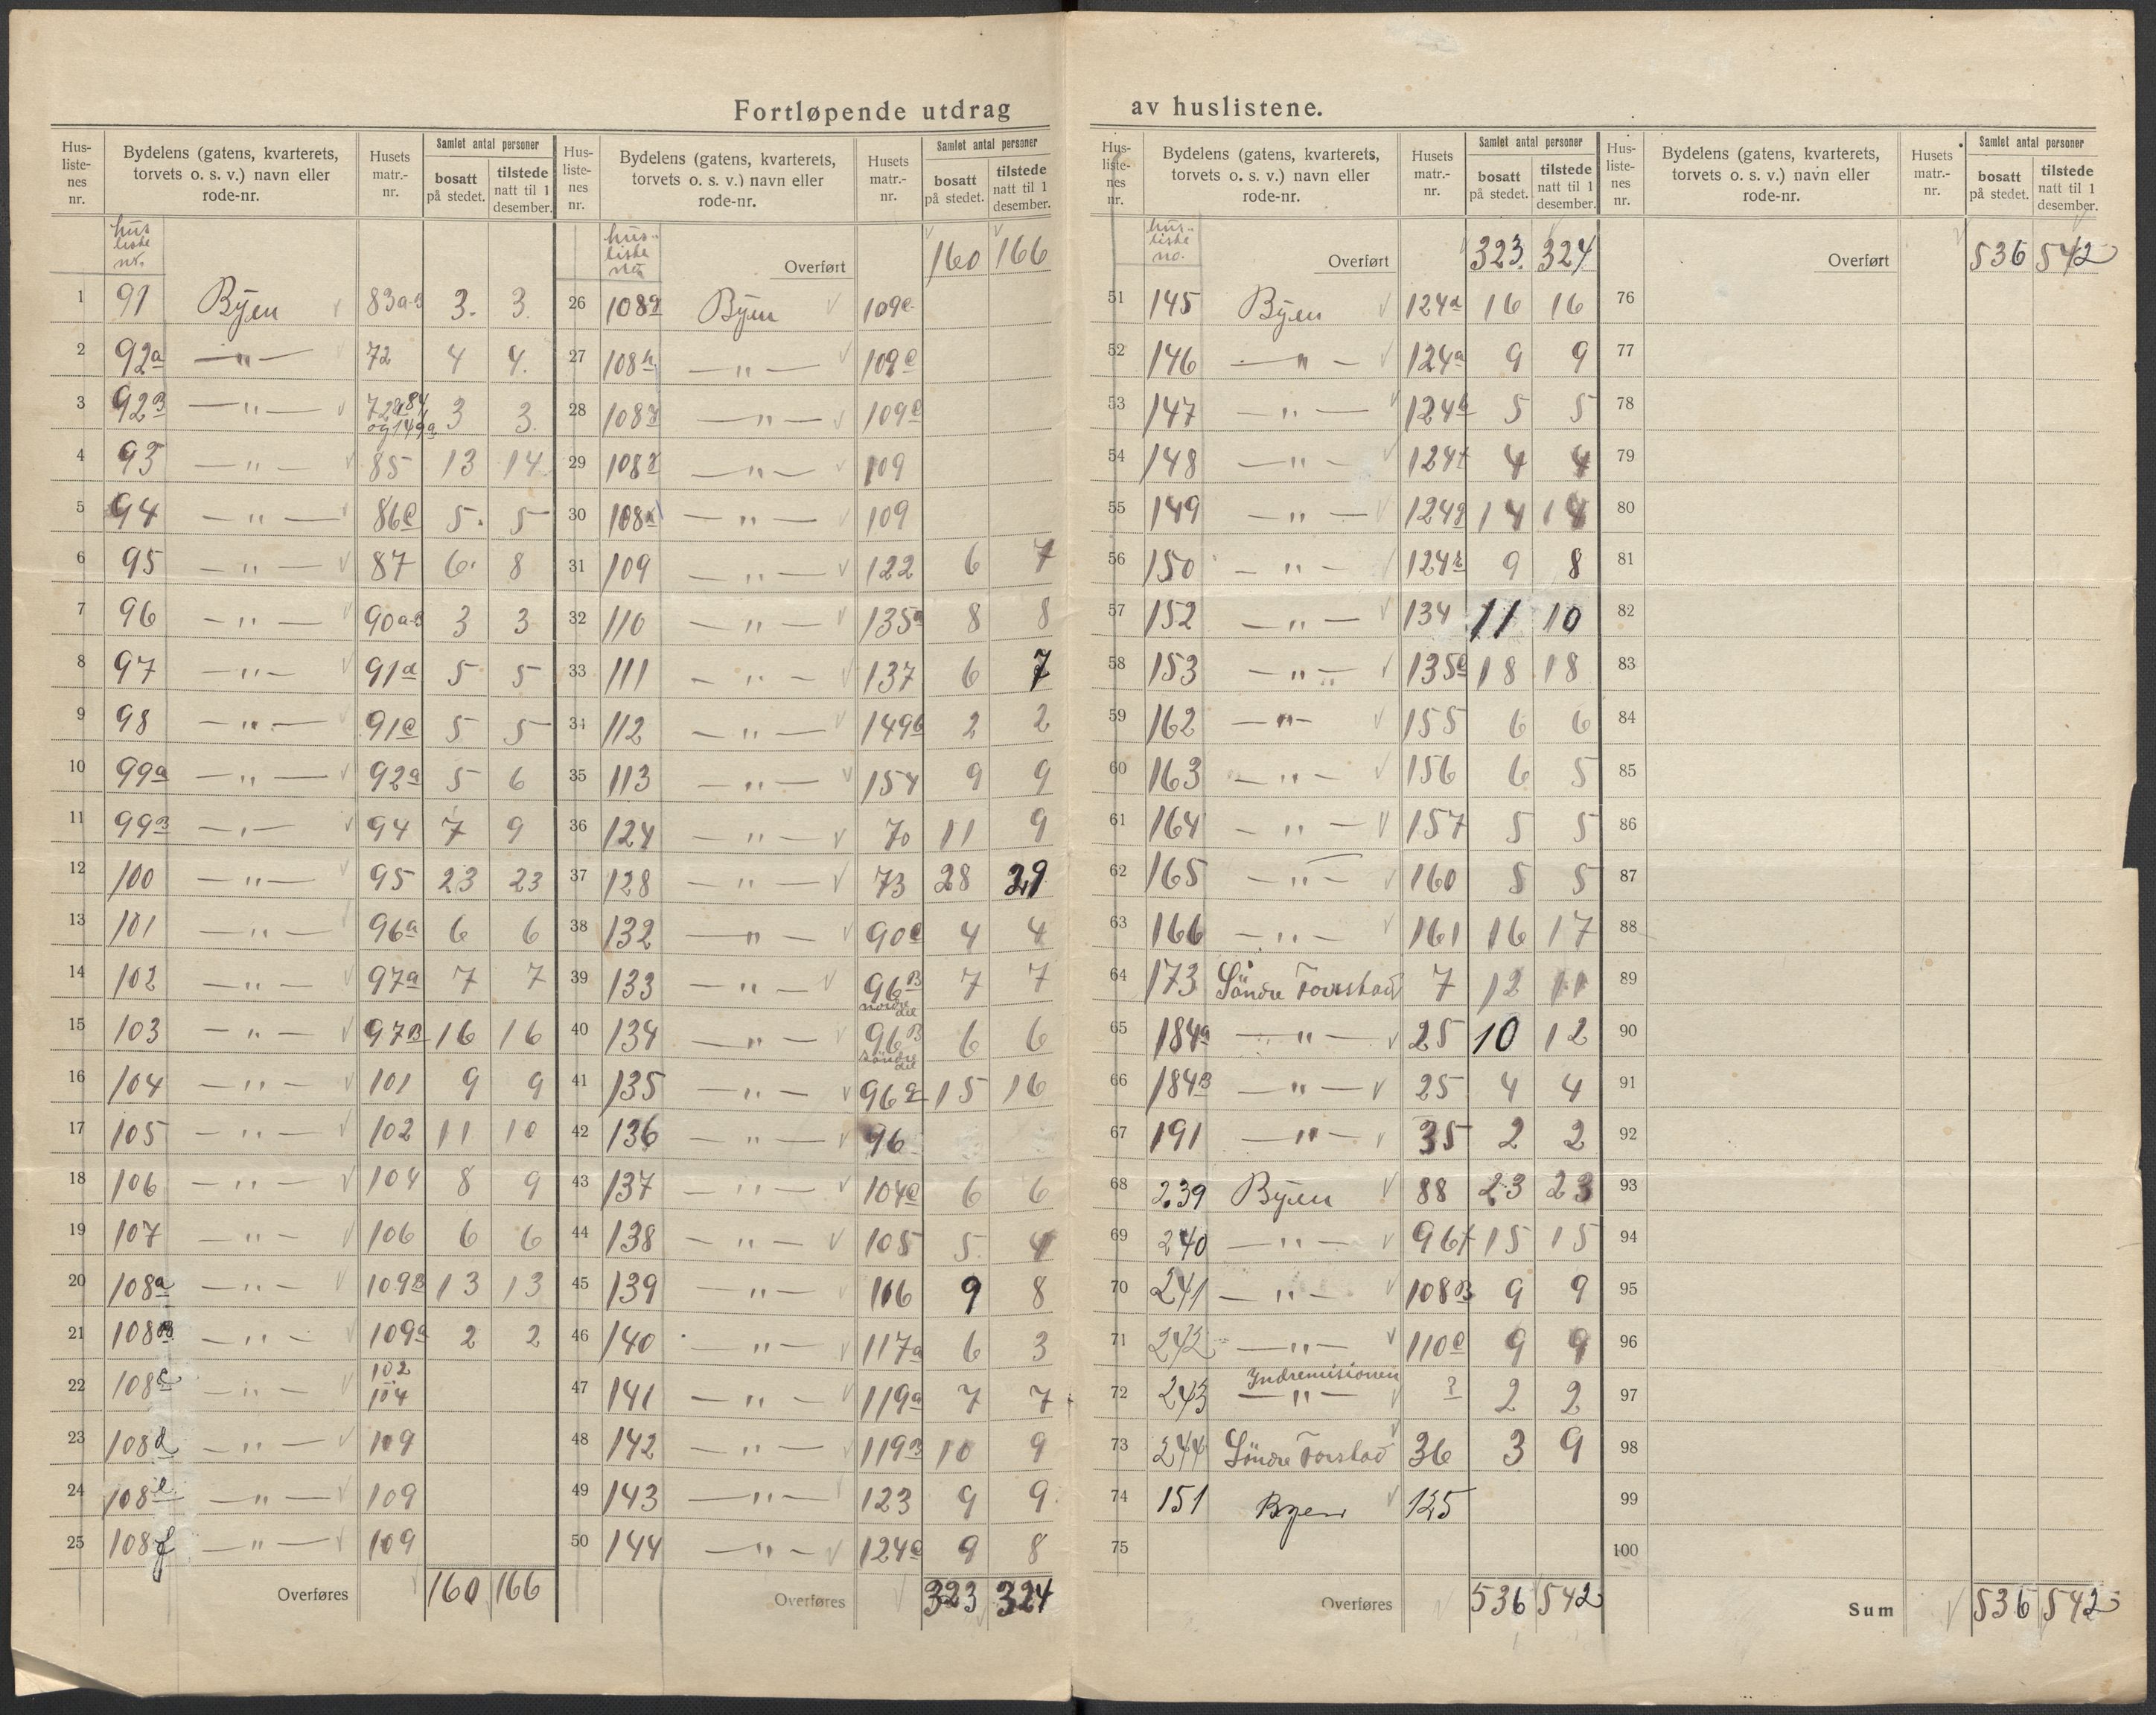 Fortløpende utdrag av huslistene.
Hus-listenes nr. Bydelens (gatens, kvarterets, torvets o. s. v.) navn eller rode-nr. Husets matr.-nr. Samlet antal personer bosatt på stedet. tilstede natt til 1 desember.
hus liste nr.
1 91 Byen 83a-b 3. 3.
2 92a —"— 72 4 4.
3 92B —"— 72a84 og 149a 3 3.
4 93 —"— 85 13 14
5 94 —"— 86c 5. 5
6 95 —"— 87 6. 8
7 96 —"— 90a-b 3 3
8 97 —"— 91d 5 5
9 98 —"— 91c 5 5
10 99a —"— 92a 5 6
11 99B —"— 94 7 9
12 100 —"— 95 23 23
13 101 —"— 96a 6 6
14 102 —"— 97a 7 7
15 103 —"— 97B 16 16
16 104 —"— 101 9 9
17 105 —"— 102 11 10
18 106 —"— 104 8 9
19 107 —"— 106 6 6
20 108a —"— 109B 13 13
21 108B —"— 109a 2 2
22 108c —"— 102 104
23 108d —"— 109
24 108e —"— 109
25 108f —"— 109
Overføres 160 166
Hus-listenes nr. Bydelens (gatens, kvarterets, torvets o. s. v.) navn eller rode-nr. Husets matr.-nr. Samlet antal personer bosatt på stedet. tilstede natt til 1 desember.
hus-liste no
Overført 160 166
26 108g Byen 109c
27 108h —"— 109c
28 —"— 109c
29 —"— 109
30 108k —"— 109
31 109 —"— 122 6 7
32 110 —"— 135a 8 8
33 111 —"— 137 6 7
34 112 —"— 149b 2 2
35 113 —"— 154 9 9
36 124 —"— 70 11 9
37 128 —"— 73 28 29
38 132 —"— 90c 4 4
39 133 —"— 96B nordre del 7 7
40 134 —"— 96B søndre del 6 6
41 135 —"— 96g 15 16
42 136 —"— 96
43 137 —"— 104c 6 6
44 138 —"— 105 5 4
45 139 —"— 116 9 8
46 140 —"— 117a 6 3
47 141 —"— 119a 7 7
48 142 —"— 119B 10 9
49 143 —"— 123 9 9
50 144 —"— 124c 9 8
Overføres 323 324
Hus-listenes nr. Bydelens (gatens, kvarterets, torvets o. s. v.) navn eller rode-nr. Husets matr.-nr. Samlet antal personer bosatt på stedet. tilstede natt til 1 desember.
hus-liste no.
Overført 323. 324
51 145 Byen 124d 16 16
52 146 —"— 124a 9 9
53 147 —"— 124b 5 5
54 148 —"— 124f 4 4
55 149 —"— 124g 14 14
56 150 —"— 124h 9 8
57 152 —"— 134 11 10
58 153 —"— 135c 18 18
59 162 —"— 155 6 6
60 163 —"— 156 6 5
61 164 —"— 157 5 5
62 165 —"— 160 5 5
63 166 —"— 161 16 17
64 173 Söndre Forstad 7 12 11
65 184a —"— 25 10 12
66 184B —"— 25 4 4
67 191 —"— 35 2 2
68 239 Byen 88 23 23
69 240 —"— 96f 15 15
70 241 —"— 108B 9 9
71 242 —"— 110c 9 9
72 243 Indremisionen —"— ? 2 2
73 244 Söndre Forstad 36 3 9
74 151 Byen 125
75
Overføres 536 542
Hus-listenes nr. Bydelens (gatens, kvarterets, torvets o. s. v.) navn eller rode-nr. Husets matr.-nr. Samlet antal personer bosatt på stedet. tilstede natt til 1 desember.
Overført 536 542
76
77
78
79
80
81
82
83
84
85
86
87
88
89
90
91
92
93
94
95
96
97
98
99
100
Sum 536 542